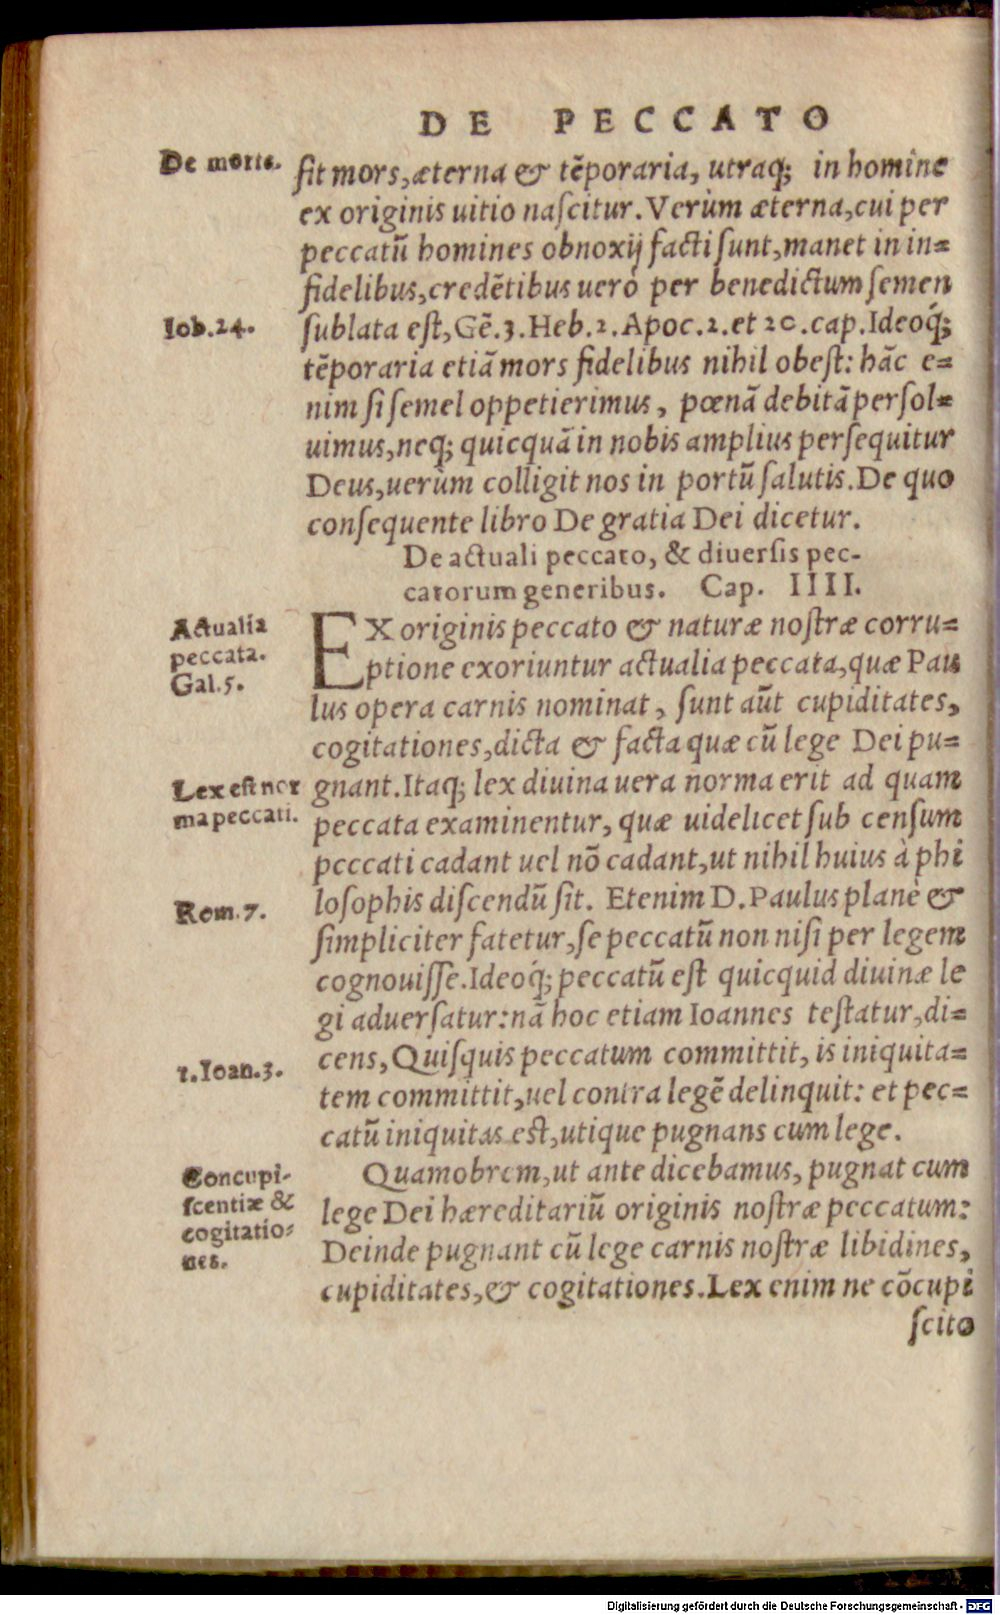 DE PECCATO
De morte.
sit mors, æterna & tẽporaria, utraq; in homine
ex originis uitio nascitur. Verùm æterna, cui per
peccatũ homines obnoxij facti sunt, manet in in=
fidelibus, credẽtibus uerò per benedictum semen
Iob.24.
sublata est, Gẽ.3. Heb.2. Apoc.2. et 20. cap. Ideoq́;
tẽporaria etiã mors fidelibus nihil obest: hãc e=
nim si semel oppetierimus, pœnã debitã persol=
uimus, neq; quicquã in nobis amplius persequitur
Deus, uerùm colligit nos in portũ salutis. De quo
consequente libro De gratia Dei dicetur.
De actuali peccato, & diuersis pec-
catorum generibus. Cap. IIII.
Actualia
peccata.
Gal.5.
EX originis peccato & naturæ nostræ corru=
ptione exoriuntur actualia peccata, quæ Pau
lus opera carnis nominat, sunt aũt cupiditates,
cogitationes, dicta & facta quæ cũ lege Dei pu=
Lex est nor
ma peccati.
gnant. Itaq; lex diuina uera norma erit ad quam
peccata examinentur, quæ uidelicet sub censum
peccati cadant uel nõ cadant, ut nihil huius à phi
Rom.7.
losophis discendũ sit. Etenim D. Paulus planè &
simpliciter fatetur, se peccatũ non nisi per legem
cognouisse. Ideoq́; peccatũ est quicquid diuinæ le
gi aduersatur: nã hoc etiam Ioannes testatur, di=
1.Ioan.3.
cens, Quisquis peccatum committit, is iniquita=
tem committit, uel contra legẽ delinquit: et pec=
catũ iniquitas est, utique pugnans cum lege.
Concupi-
scentiæ &
cogitatio-
nes.
Quamobrem, ut ante dicebamus, pugnat cum
lege Dei hæreditariũ originis nostræ peccatum:
Deinde pugnant cũ lege carnis nostræ libidines,
cupiditates, & cogitationes. Lex enim ne cõcupi
scito
Digitalisierung gefördert durch die Deutsche Forschungsgemeinschaft - DFG